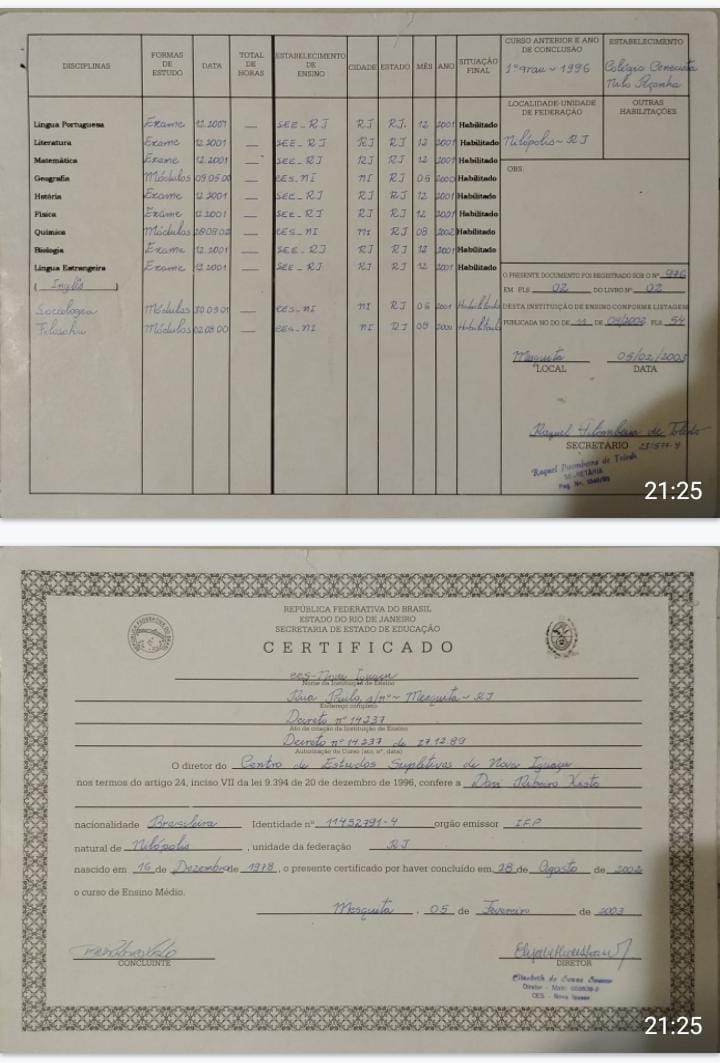 DISCIPLINAS FORMAS DE ESTUDO DATA TOTAL DE HORAS ESTABELECIMENTO DE ENSINO CIDADE ESTADO MÊS ANO SITUAÇÃO FINAL
CURSO ANTERIOR E ANO DE CONCLUSÃO
1º grau ~ 1996
ESTABELECIMENTO
Colégio Cenecista
Nilo Peçanha
LOCALIDADE-UNIDADE DE FEDERAÇÃO
Nilópolis ~ RJ
OUTRAS HABILITAÇÕES
OBS:
Língua Portuguesa Exame 12.2001 — SEE - RJ RJ RJ. 12 2001 Habilitado
Literatura Exame 12.2001 — SEE - RJ RJ RJ 12 2001 Habilitado
Matemática Exame 12.2001 — SEE - RJ RJ RJ 12 2001 Habilitado
Geografia Módulos — CES. NI NI RJ 05 2000 Habilitado
História Exame 12.2001 — SEE - RJ RJ RJ 12 2001 Habilitado
Física Exame 12.2001 — SEE - RJ RJ RJ 12 2001 Habilitado
Química Módulos 28.08.02 — CES - NI NI RJ 08 2002 Habilitado
Biologia Exame 12.2001 — SEE - RJ RJ RJ 12 2001 Habilitado
Língua Estrangeira Exame 12.2001 — SEE - RJ RJ RJ 12 2001 Habilitado
( Inglês )
Sociologia Módulos — CES - NI NI RJ Habilitado
Filosofia Módulos — CES - NI NI RJ Habilitado
O PRESENTE DOCUMENTO FOI REGISTRADO SOB O Nº 976
EM FLS 02 DO LIVRO Nº 02
DESTA INSTITUIÇÃO DE ENSINO CONFORME LISTAGEM
PUBLICADA NO DO DE DE FLS 54
Mesquita 05/02/2003
LOCAL DATA
Raquel de Toledo
SECRETÁRIO
Raquel de Toledo
SECRETÁRIA
21:25
REPÚBLICA FEDERATIVA DO BRASIL
ESTADO DO RIO DE JANEIRO
SECRETARIA DE ESTADO DE EDUCAÇÃO
CERTIFICADO
CES - Nova Iguaçu
Nome da Instituição de Ensino
Rua Paulo, s/nº ~ Mesquita ~ RJ
Endereço completo
Decreto nº 14237
Ato de criação da Instituição de Ensino
Decreto nº 14.237 de 27.12.89
Autorização do Curso (ato, nº, data)
O diretor do Centro de Estudos Supletivos de Nova Iguaçu
nos termos do artigo 24, inciso VII da lei 9.394 de 20 de dezembro de 1996, confere a Davi Ribeiro
nacionalidade Brasileira Identidade nº 11452791-4 orgão emissor I.F.P
natural de Nilópolis , unidade da federação RJ
nascido em 16 de Dezembro de 1978 , o presente certificado por haver concluído em 28 de Agosto de 2002
o curso de Ensino Médio.
Mesquita , 05 de Fevereiro de 2003
CONCLUINTE DIRETOR
Elizabeth de Souza
CES - Nova Iguaçu
21:25